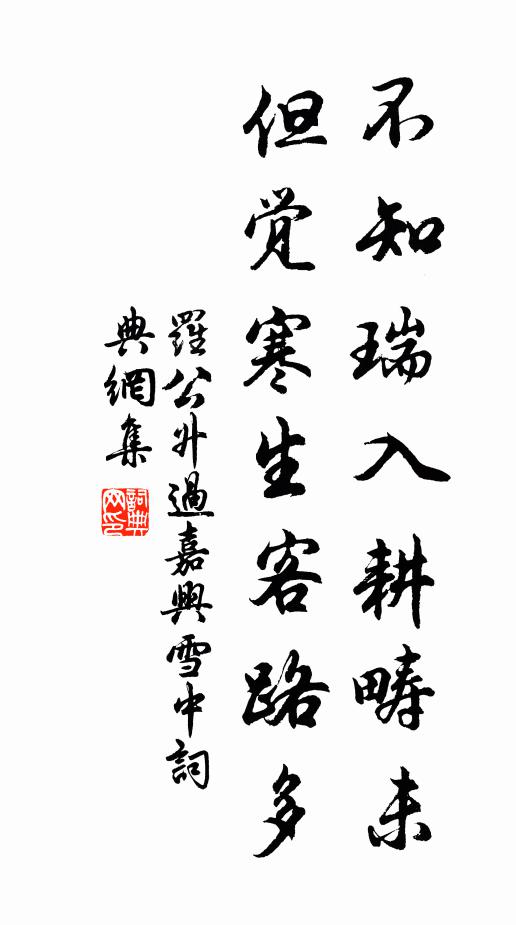 不知瑞入耕畴未
但觉寒生客路多
羅公升過嘉興雪中詞
典網集
詞典网印